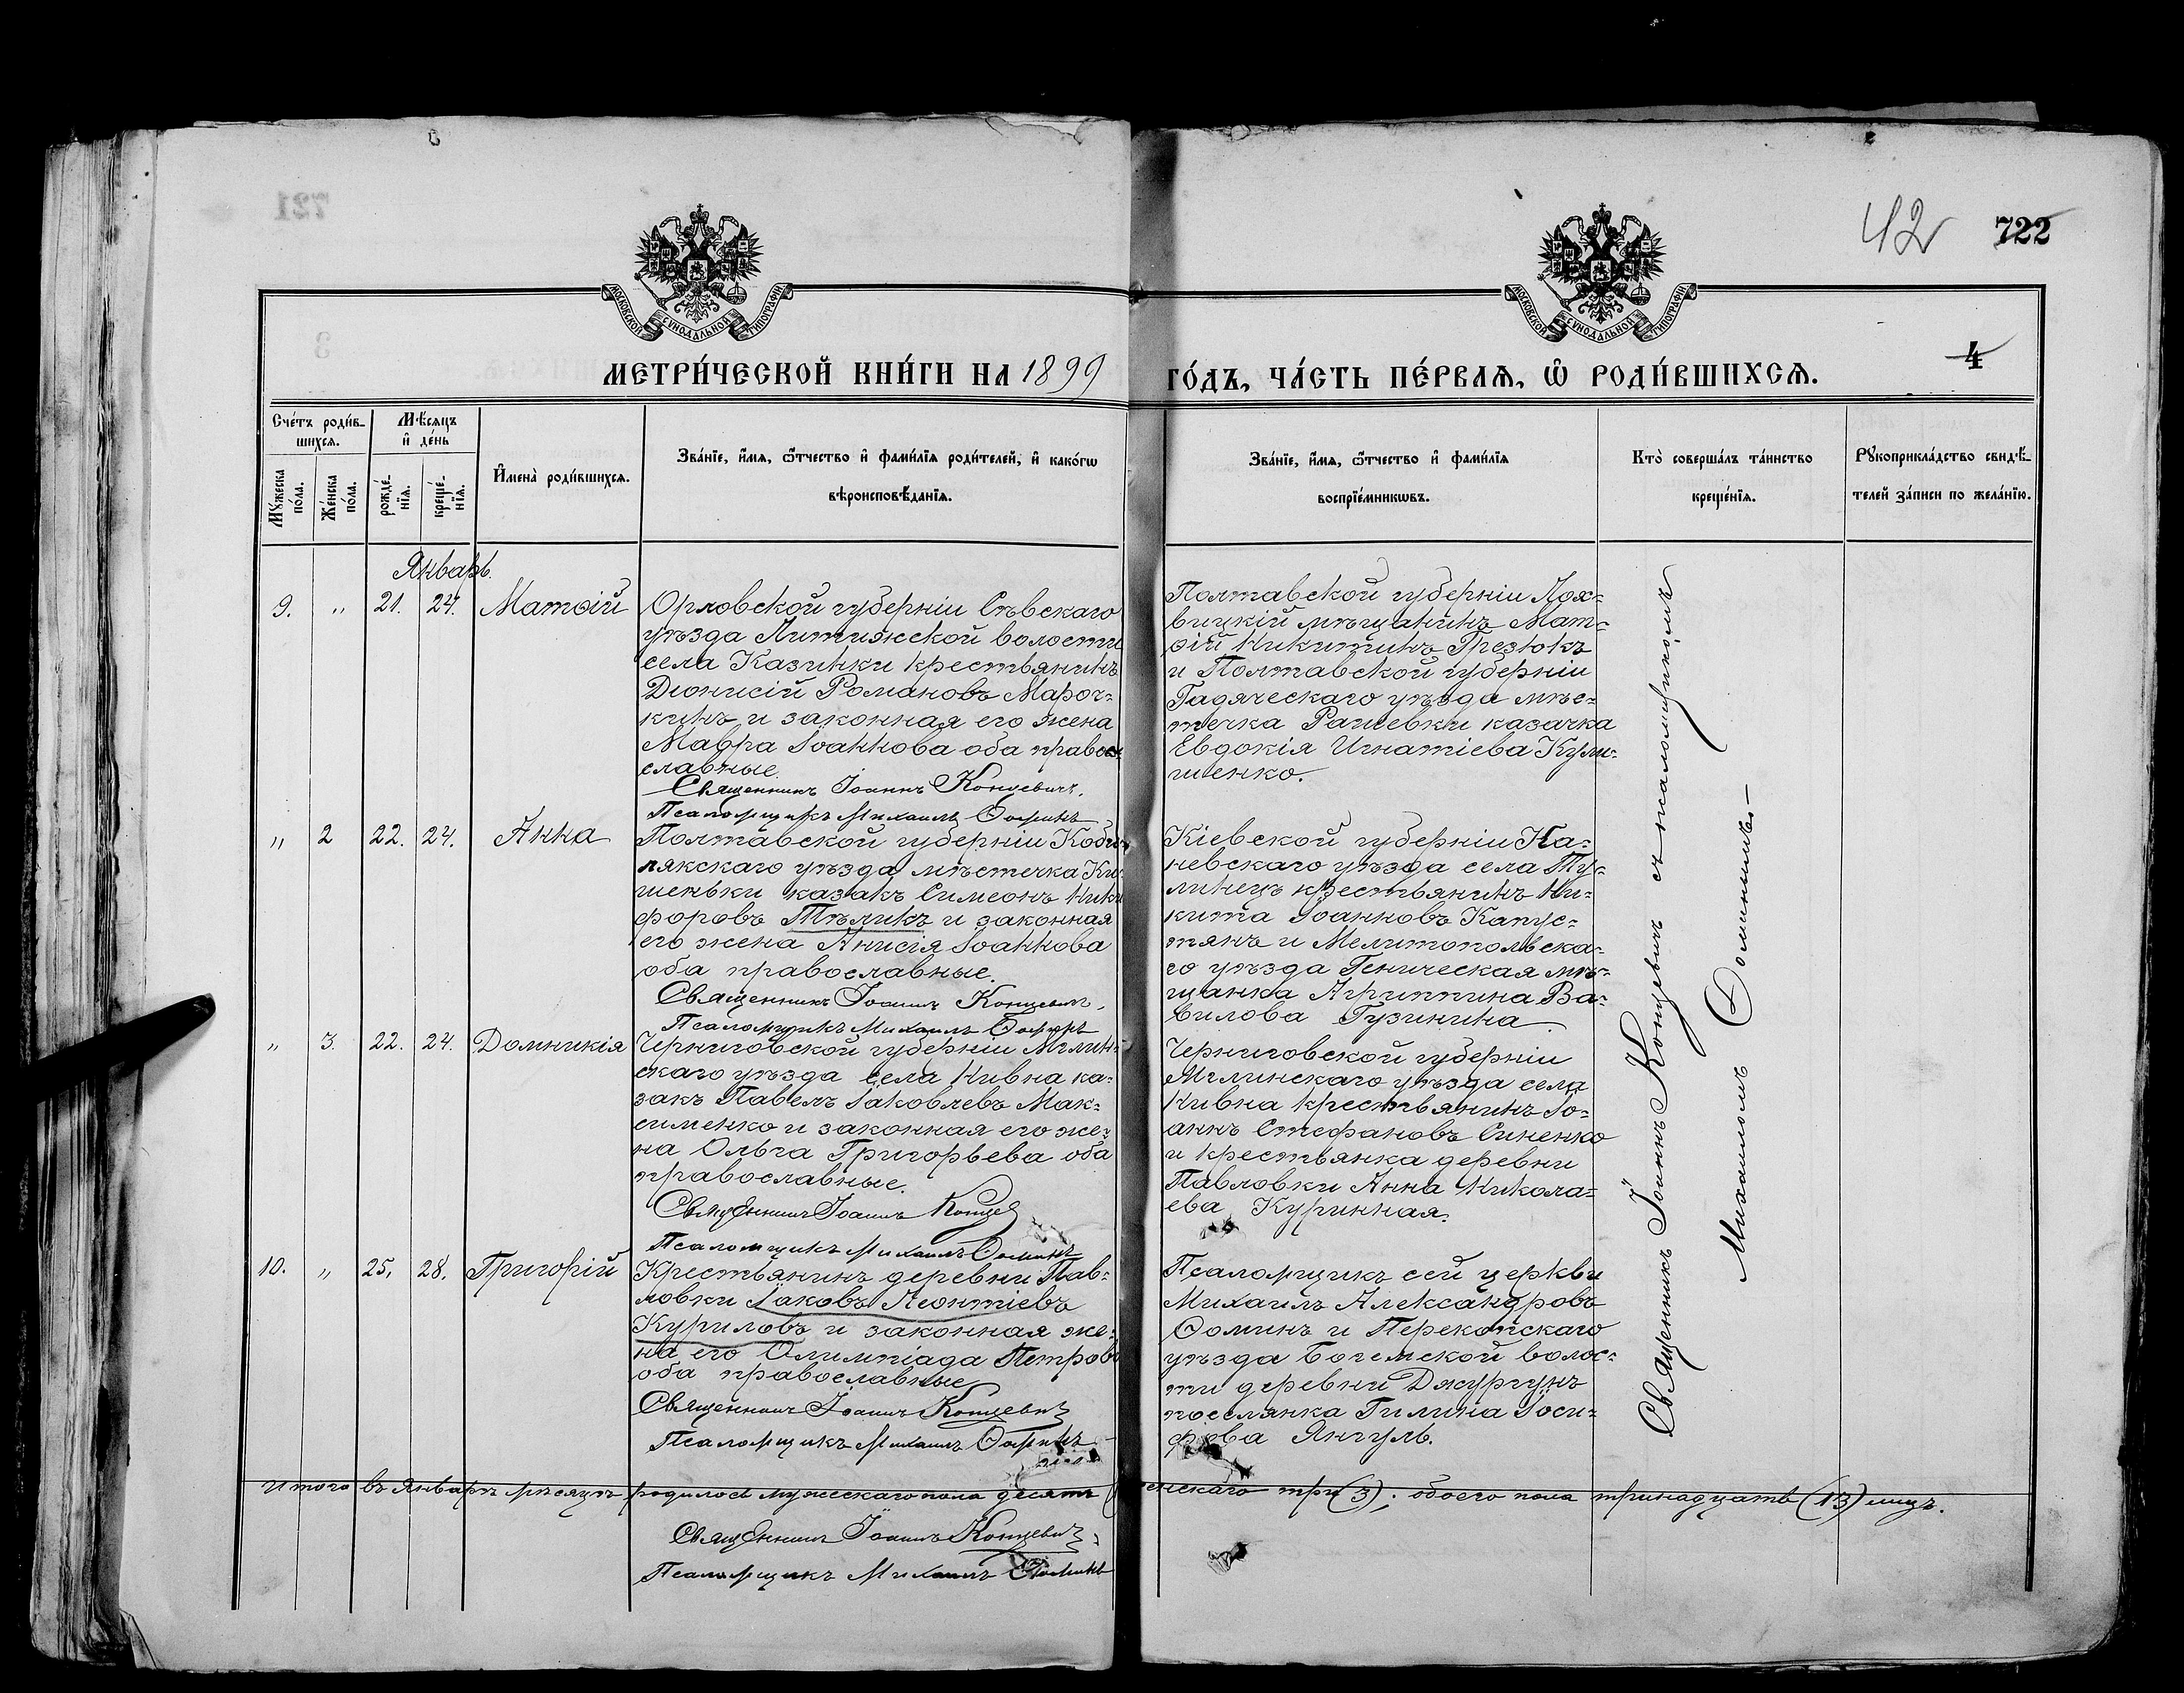 42
722
МОСКОВСКОЙ СѴНОДАЛЬНОЙ ТИПОГРАФІИ
МОСКОВСКОЙ СѴНОДАЛЬНОЙ ТИПОГРАФІИ
МЕТРИ́ЧЕСКОЙ КНИ́ГИ НА 1899
ГО́ДЪ, ЧА́СТЬ ПЕ́РВАѦ, Ѽ РОДИ́ВШИХСѦ.
4
Сче́тъ роди́в-
шихсѧ.
Мꙋ́жеска по́ла.
Же́нска по́ла.
Мѣ́сѧцъ
и҆ де́нь
рожде́-
нїѧ.
креще́-
нїѧ.
И҆мена̀ роди́вшихсѧ.
Зва́нїе, и҆́мѧ, ѻ҆́тчество и҆ фами́лїѧ роди́телей, и҆ како́гѡ
вѣроисповѣ́данїѧ.
Зва́нїе, и҆́мѧ, ѻ҆́тчество и҆ фами́лїѧ
воспрїе́мникѡвъ.
Кто̀ соверша́лъ та́инство
креще́нїѧ.
Рꙋкоприкла́дство свидѣ́-
телей за́писи по жела́нїю.
Январь.
9. " 21. 24. Матѳій
Орловской губерніи Сѣвскаго
уѣзда Литижской волости
села Казинки крестьянинъ
Діонисій Романовъ Мароч-
кинъ и законная его жена
Мавра Іоаннова оба право-
славные.
Священникъ Іоаннъ Концевичъ.
Псаломщикъ Михаилъ Ѳоминъ
Полтавской губерніи Лох-
вицкій мѣщанинъ Мат-
ѳій Никитинъ Грезюкъ
и Полтавской губерніи
Гадяческаго уѣзда мѣс-
течка Рашевки казачка
Евдокія Игнатіева Кули-
шенко.
" 2 22. 24. Анна
Полтавской губерніи Кобы-
лякскаго уѣзда мѣстечка Ки-
шеньки казакъ Симеонъ Ники-
форовъ Тѣликъ и законная
его жена Анисія Іоаннова
оба православные.
Священникъ Іоаннъ Концевич.
Псаломщикъ Михаилъ Ѳоминъ
Кіевской губерніи Ка-
невскаго уѣзда села Ту-
линецъ крестьянинъ Ни-
кита Іоанновъ Капус-
тянъ и Мелитопольска-
го уѣзда Геническая мѣ-
щанка Агриппина Ва-
вилова Гузинина.
" 3. 22. 24. Домникія
Черниговской губерніи Мглин-
скаго уѣзда села Нивна ка-
закъ Павелъ Іаковлевъ Мак-
сименко и законная его же-
на Ольга Григорьева оба
православные.
Священникъ Іоаннъ Концев
Псаломщикъ Михаилъ Ѳоминъ
Черниговской губерніи
Мглинскаго уѣзда села
Нивна крестьянинъ Іо-
аннъ Стефановъ Синенко
и крестьянка деревни
Павловки Анна Никола-
ева Куринная.
10. " 25. 28. Григорій
Крестьянинъ деревни Пав-
ловки Іаковъ Леонтіевъ
Куриловъ и законная же-
на его Олимпіада Петров
оба православные
Священникъ Іоаннъ Концевич
Псаломщикъ Михаилъ Ѳоминъ
Псаломщикъ сей церкви
Михаилъ Александровъ
Ѳоминъ и Перекопскаго
уѣзда Богемской волос-
ти деревни Джургунъ
поселянка Гилина Іоси-
фова Янгуль.
Священникъ Іоаннъ Концевичъ съ псаломщикомъ
Михаиломъ Ѳоминымъ.
Итого въ Январѣ мѣсяцѣ родилось мужескаго пола десять (
енскаго три (3); обоего пола тринадцать (13) лицъ.
Священникъ Іоаннъ Концевич
Псаломщикъ Михаилъ Ѳоминъ